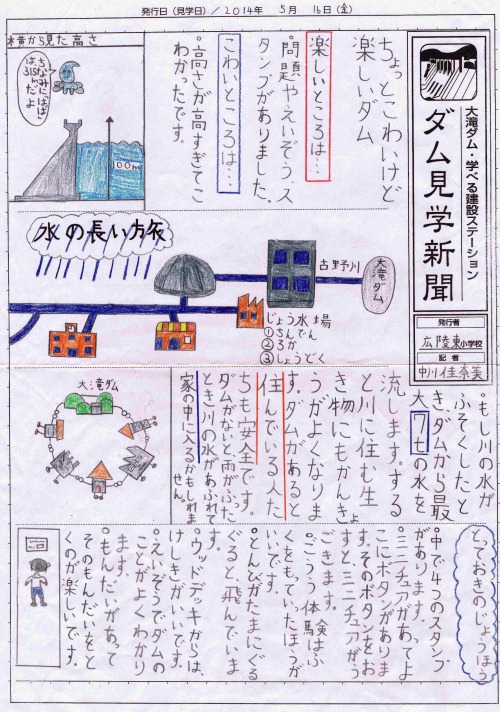 発行日（見学日）／2014年 5月 16日（金）
大滝ダム・学べる建設ステーション
ダム見学新聞
発行者
広陵東小学校
記者
中川佳奈美
ちょっとこわいけど
楽しいダム
楽しいところは…
・問題やえいぞう、ス
タンプがありました。
こわいところは…
・高さが高すぎてこ
わかったです。
横から見た高さ
ちなみにはばは、
315mだよ
100m
水の長い旅
大滝ダム
じょう水場
①ちんでん
②ろか
③しょうどく
・もし川の水が
ふそくしたと
き、ダムから最
大7tの水を
流します。する
と川に住む生
き物にもかんきょ
うがよくなりま
す。ダムがあると
住んでいる人た
ちも安全です。
ダムがないと、雨がふった
とき川の水があふれて
家の中に入るかもしれま
せん。
大滝ダム
とっておきのじょうほう
・中で4つのスタンプ
があります。
・ミニチュアがあってよ
こにボタンがありま
す。そのボタンをお
すと、ミニチュアがう
ごきます。
・ごうう体験はふ
くをもっていたほうが
いいです。
・とんびがたまにぐる
ぐると、飛んでいま
す。
・ウッドデッキからは、
けしきがいいです。
・えいぞうでダムの
ことがよくわかり
ます。
・もんだいがあって
そのもんだいをと
くのが楽しいです。